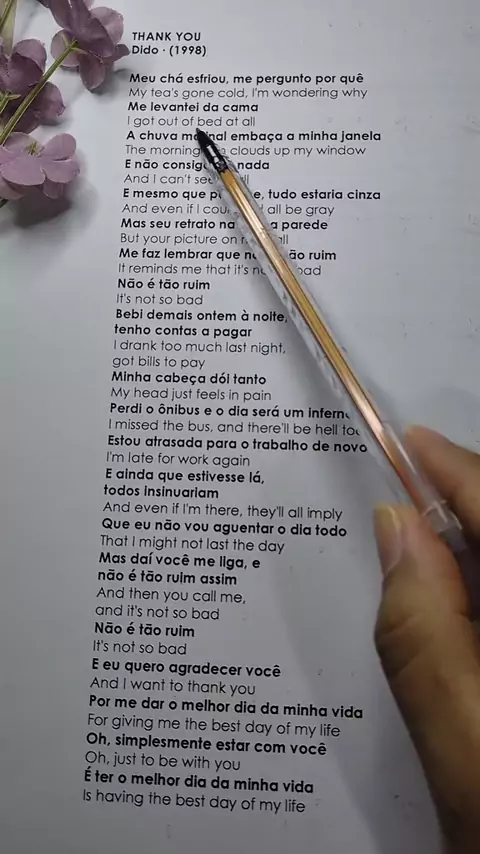 THANK YOU
Dido · (1998)
Meu chá esfriou, me pergunto por quê
My tea's gone cold, I'm wondering why
Me levantei da cama
I got out of bed at all
A chuva embaça a minha janela
The morning clouds up my window
E não nada
And I can't
E mesmo que tudo estaria cinza
And even if I all be gray
Mas seu retrato parede
But your picture on
Me faz lembrar que ruim
It reminds me that it's bad
Não é tão ruim
It's not so bad
Bebi demais ontem à noite,
tenho contas a pagar
I drank too much last night,
got bills to pay
Minha cabeça dói tanto
My head just feels in pain
Perdi o ônibus e o dia será um
I missed the bus, and there'll be hell
Estou atrasada para o trabalho de novo
I'm late for work again
E ainda que estivesse lá,
todos insinuariam
And even if I'm there, they'll all imply
Que eu não vou aguentar o dia todo
That I might not last the day
Mas daí você me liga, e
não é tão ruim assim
And then you call me,
and it's not so bad
Não é tão ruim
It's not so bad
E eu quero agradecer você
And I want to thank you
Por me dar o melhor dia da minha vida
For giving me the best day of my life
Oh, simplesmente estar com você
Oh, just to be with you
É ter o melhor dia da minha vida
Is having the best day of my life